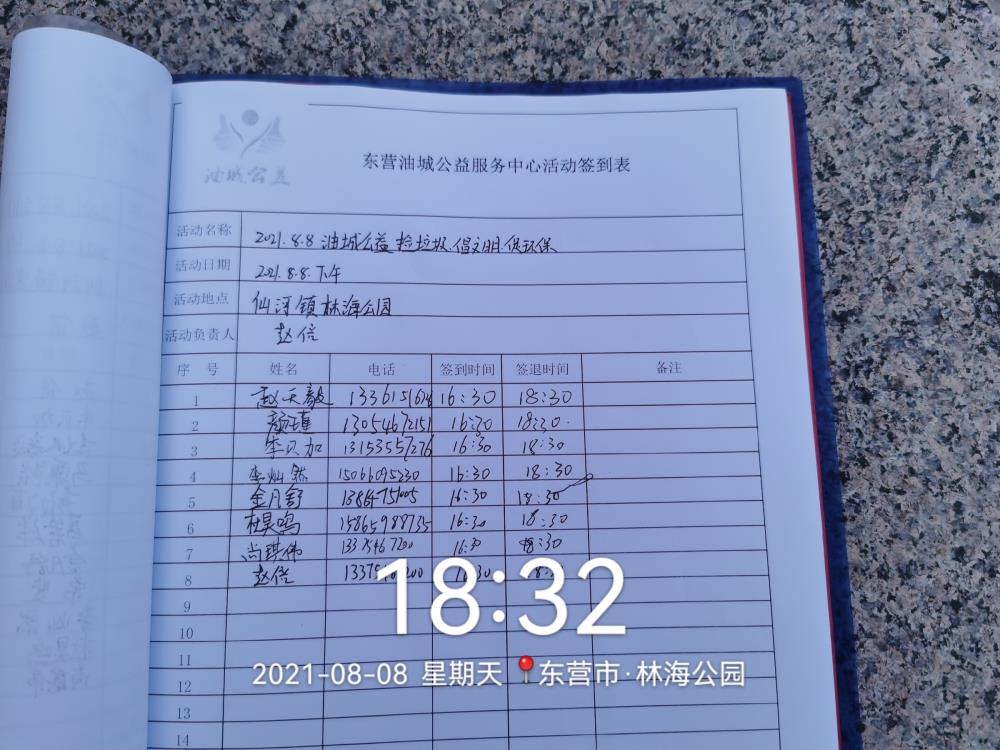 油城公益
东营油城公益服务中心活动签到表
活动名称 2021.8.8 油城公益 捡垃圾.倡文明.促环保
活动日期 2021.8.8.下午
活动地点 仙河镇林海公园
活动负责人 赵信
序 号 姓名 电话 签到时间 签退时间 备注
1 赵天毅 16:30 18:30
2 颜瑾 13054672151 16:30 18:30
3 李贝加 13153557276 16:30 18:30
4 李灿然 15066095230 16:30 18:30
5 金月舒 16:30 18:30
6 杜昊鸣 15865988735 16:30 18:30
7 尚琪伟 16:30 18:30
8 赵信
9
10
11
12
13
14
18:32
2021-08-08 星期天 东营市·林海公园